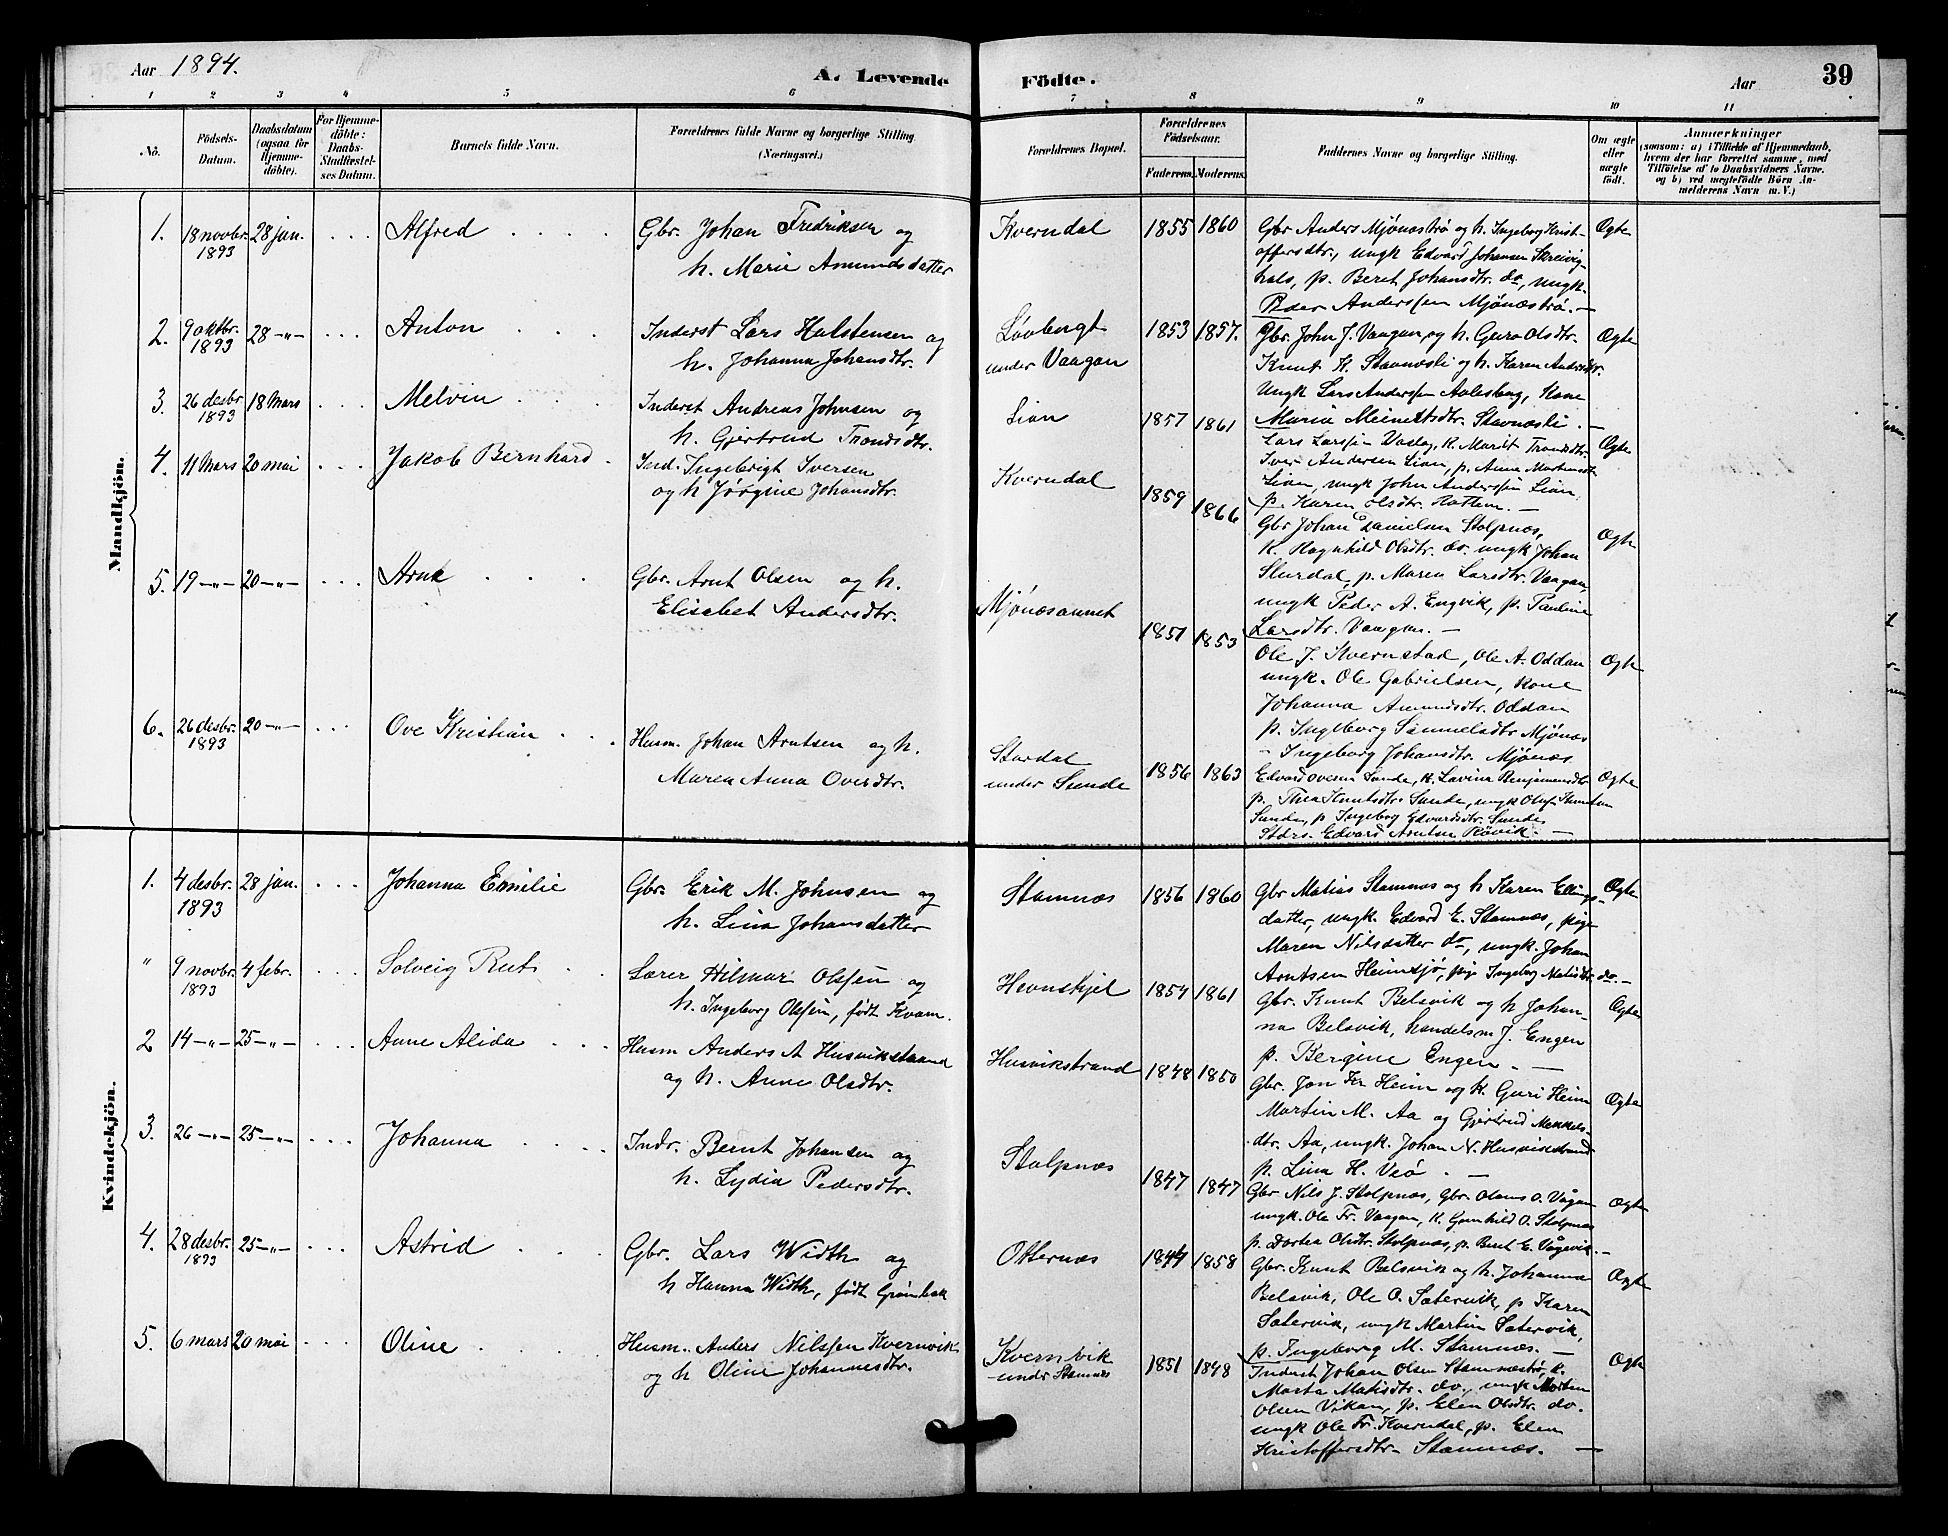 Aar 1894.
A. Levende Födte.
Aar
39
1 2 3 4 5 6 7 8 9 10 11
No.
Födsels-Datum.
Daabsdatum (ogsaa for Hjemmedöbte).
For Hjemmedöbte: Daabs-Stadfæstelses Datum.
Barnets fulde Navn.
Forældrenes fulde Navne og borgerlige Stilling. (Næringsvei.)
Forældrenes Bopæl.
Forældrenes Födselsaar.
Faderens. Moderens.
Faddernes Navne og borgerlige Stilling.
Om ægte eller uægte födt.
Anmærkninger
(saasom: a) i Tilfælde af Hjemmedaab, hvem der har forrettet samme, med Tilföielse af to Daabsvidners Navne, og b) ved uægtefödte Börn Anmelderens Navn m. V.)
Mandkjön.
1. 18 novbr. 1893 28 jan. . . . Alfred . . . .
Gbr. Johan Fredriksen og
h. Marie Amundsdatter
Kverndal 1855 1860
Gbr Anders Mjønæstrø og h. Ingeborg Krist-
offersdtr., ungk Edvard Johansen Skreivig-
hals, p. Beret Johansdtr. do, ungk.
Peder Anderssen Mjønæstrø. —
Ægte
2. 9 oktbr. 1893 28 -"- . . . Anton . . .
Inderst Lars Halstensen og
h. Johanna Johansdtr.
Løvbergt
under Vaagan 1853 1857.
Gbr. John J. Vaagan, og h. Guro Olsdtr.
Knut K. Stavnæsli og h. Karen Andersdtr.
Ungk Lars Anderssen Aalesberg, Kone
Maria Meinertsdtr. Stavnæsli. —
Ægte
3. 26 desbr 1893 18 Mars . . . Melvin . . .
Inderst Andreas Johnsen og
h. Gjertrud Trondsdtr.
Lian 1857 1861
Lars Larssen Vaslag, k. Marit Trondsdtr.
Iver Andersen Lian, p. Anne Martinusdtr
Lian, ungk John Anderssen Lian,
p. Karen Olsdtr. Rottem. —
Ægte
4. 11 Mars 20 mai . . . Jakob Bernhard .
Ind. Ingebrigt Iversen
og h Jørgine Johansdtr.
Kverndal 1859 1866
Gbr Johan Danielsen Stolpnæs,
K. Ragnhild Olsdtr. do. ungk Johan
Slurdal, p. Maren Larsdtr. Vaagan,
ungk Peder A. Engvik, p. Pauline
Larsdtr. Vaagan. —
Ægte
5. 19 -"- 20 -"- . . . Arnt . . .
Gbr. Arnt Olsen og h.
Elisabet Andersdtr.
Mjønæsaunet 1851 1853
Ole J. Kvernstad, Ole A. Oddan
ungk. Ole Gabrielsen, kone
Johanna Amundsdtr. Oddan
p. Ingeborg Samuelsdtr Mjønæs
" Ingeborg Johansdtr. Mjønæs
Ægte
6. 26 desbr. 1893 20 -"- . . . Ove Kristian . . .
Husm. Johan Arntsen og h.
Maren Anna Oversdtr.
Stordal
under Sunde 1856 1863
Edvard Oversen Sunde, k. Lavina Benjaminsdtr
p. Thea Knutsdtr. Sunde, ungk Oluf Knutsen
Sunde, p Ingeborg Edvardsdtr. Sunde
Stdrs. Edvard Arntsen Røvik. —
Ægte
Kvindekjön.
1. 4 desbr. 1893 28 jan. . . . Johanna Emilie
Gbr. Erik M. Johnsen og
h. Lina Johansdatter
Stamnæs 1856 1860
Gbr Matias Stamnæs og h Karen Ellings-
datter, ungk. Edvard E. Stamnæs, pige
Maren Nilsdatter do, ungk. Johan
Arntsen Heimsjø, pige Ingeborg Matisdtr. do. —
Ægte
" 9 novbr. 1893 4 febr. . . . Solveig Rut . .
Lærer Hilmar Olssen og
h. Ingeborg Olssen, født Kvam.
Hevnskjel 1854 1861
Gbr. Knut Belsvik og h Johan-
na Belsvik, handelsm J. Engen
p. Bergine Engen. —
Ægte
2 14 -"- 25 -"- . . . Anne Alida . . .
Husm Anders A Husvikstrand
og h. Anne Olsdtr.
Husvikstrand 1848 1850
Gbr. Jon Fr Heim og k. Guri Heim
Martin M. Aa og Gjertrud Mekkels-
dtr. Aa, ungk. Johan N. Husvikstrand
p. Lina H. Veø . —
Ægte
3. 26 -"- 25 -"- . . . Johanna . . .
Indr. Bernt Johansen og
h. Lydia Pedersdtr.
Stolpnæs 1847 1847
Gbr Nils J. Stolpnæs, Gbr. Olaus O. Vågan
ungk. Ole Fr. Vaagan, K. Gunhild O. Stolpnæs
p. Dortea Olsdtr. Stolpnæs, p. Beret E. Vågavik. —
Ægte
4. 28 desbr. 1893 25 -"- . . . Astrid . . .
Gbr. Lars Width og
h Hanna Width, født Grønbæk
Otternæs 1844 1858
Gbr. Knut Belsvik og h. Johanna
Belsvik, Ole O. Sætervik, p Karen
Sætervik, ungk Martin Sætervik,
p. Ingeborg M. Stamnæs. —
Ægte
5. 6 mars 20 mai . . . Oline . . .
Husm. Anders Nilssen Kvernvik
og h Oline Johannesdtr.
Kvernvik
under Stamnæs 1851 1848
Inderst Johan Olsen Stamnæstrø, k.
Marta Matisdtr. do., ungk Morten
Olsen Vikan, p. Elen Olsdtr. do.
ungk Ole Fr. Kverndal, p. Elen
Kristoffersdtr. Stamnæs. —
Ægte